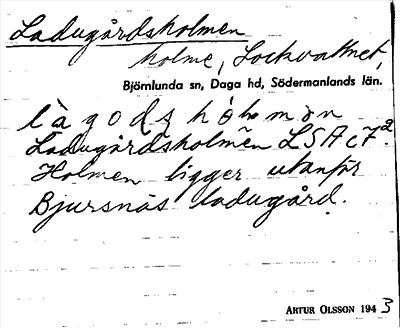 Ladugårdsholmen
holme, Lockvattnet,
Björnlunda sn, Daga hd, Södermanlands län.
làgodshòlmon
Ladugårdsholmen LSA c72.
Holmen ligger utanför
Bjursnäs ladugård.
ARTUR OLSSON 1943